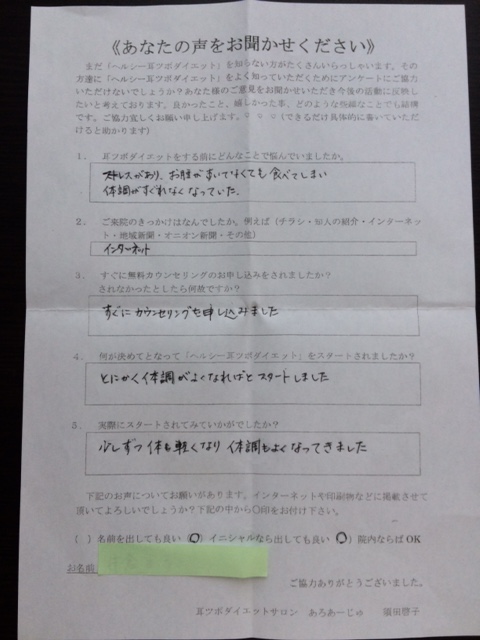 《あなたの声をお聞かせください》
まだ「ヘルシー耳ツボダイエット」を知らない方がたくさんいらっしゃいます。その
方達に「ヘルシー耳ツボダイエット」をよく知っていただくためにアンケートにご協力
いただけないでしょうか？あなた様のご意見をお聞かせいただき今後の活動に反映し
たいと考えております。良かったこと、嬉しかった事、どのような些細なことでも結構
です。ご協力宜しくお願い申し上げます。♡♡♡(できるだけ具体的に書いていただ
けると助かります)
1、 耳ツボダイエットをする前にどんなことで悩んでいましたか。
ストレスがあり、お腹がすいてなくても食べてしまい
体調がすぐれなくなっていた。
2、 ご来院のきっかけはなんでしたか。例えば（チラシ・知人の紹介・インターネッ
ト・地域新聞・オニオン新聞・その他）
インターネット
3、 すぐに無料カウンセリングのお申し込みをされましたか？
されなかったとしたら何故ですか？
すぐにカウンセリングを申し込みました
4、 何が決めてとなって「ヘルシー耳ツボダイエット」をスタートされましたか？
とにかく体調がよくなればとスタートしました
5、 実際にスタートされてみていかがでしたか？
少しずつ体も軽くなり体調もよくなってきました
下記のお声についてお願いがあります。インターネットや印刷物などに掲載させて
頂いてよろしいでしょうか？下記の中から〇印をお付け下さい。
( ) 名前を出しても良い (〇) イニシャルなら出しても良い (〇) 院内ならばOK
お名前
ご協力ありがとうございました。
耳ツボダイエットサロン あろあーじゅ 須田啓子